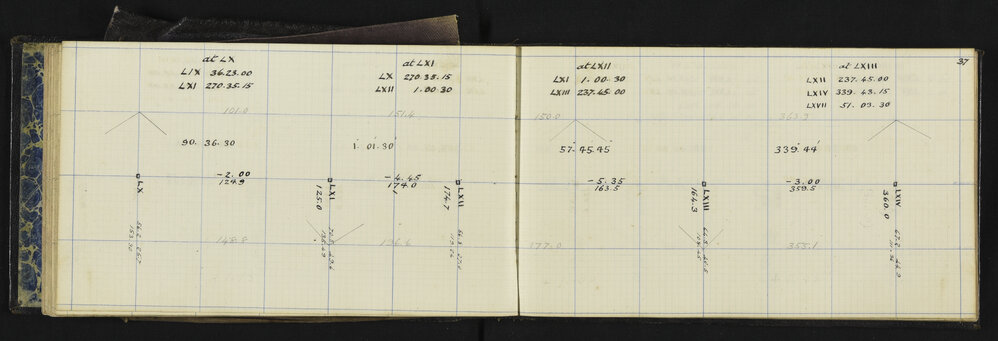 37
at LX
LIX 36.23.00
LXI 270.35.15
at LXI
LX 270.35.15
LXII 1.00.30
at LXII
LXI 1.00.30
LXIII 237.45.00
at LXIII
LXII 237.45.00
LXIV 339.43.15
LXVII 51.03.30
101.0
151.4
150.0
363.9
90.36.30
1.01.30
57.45.45
339.44
-2.00
124.9
-4.45
174.0
-5.35
163.5
-3.00
359.5
LX
LXI
125.0
LXII
174.7
LXIII
164.3
LXIV
360.0
148.8
196.6
177.0
355.1